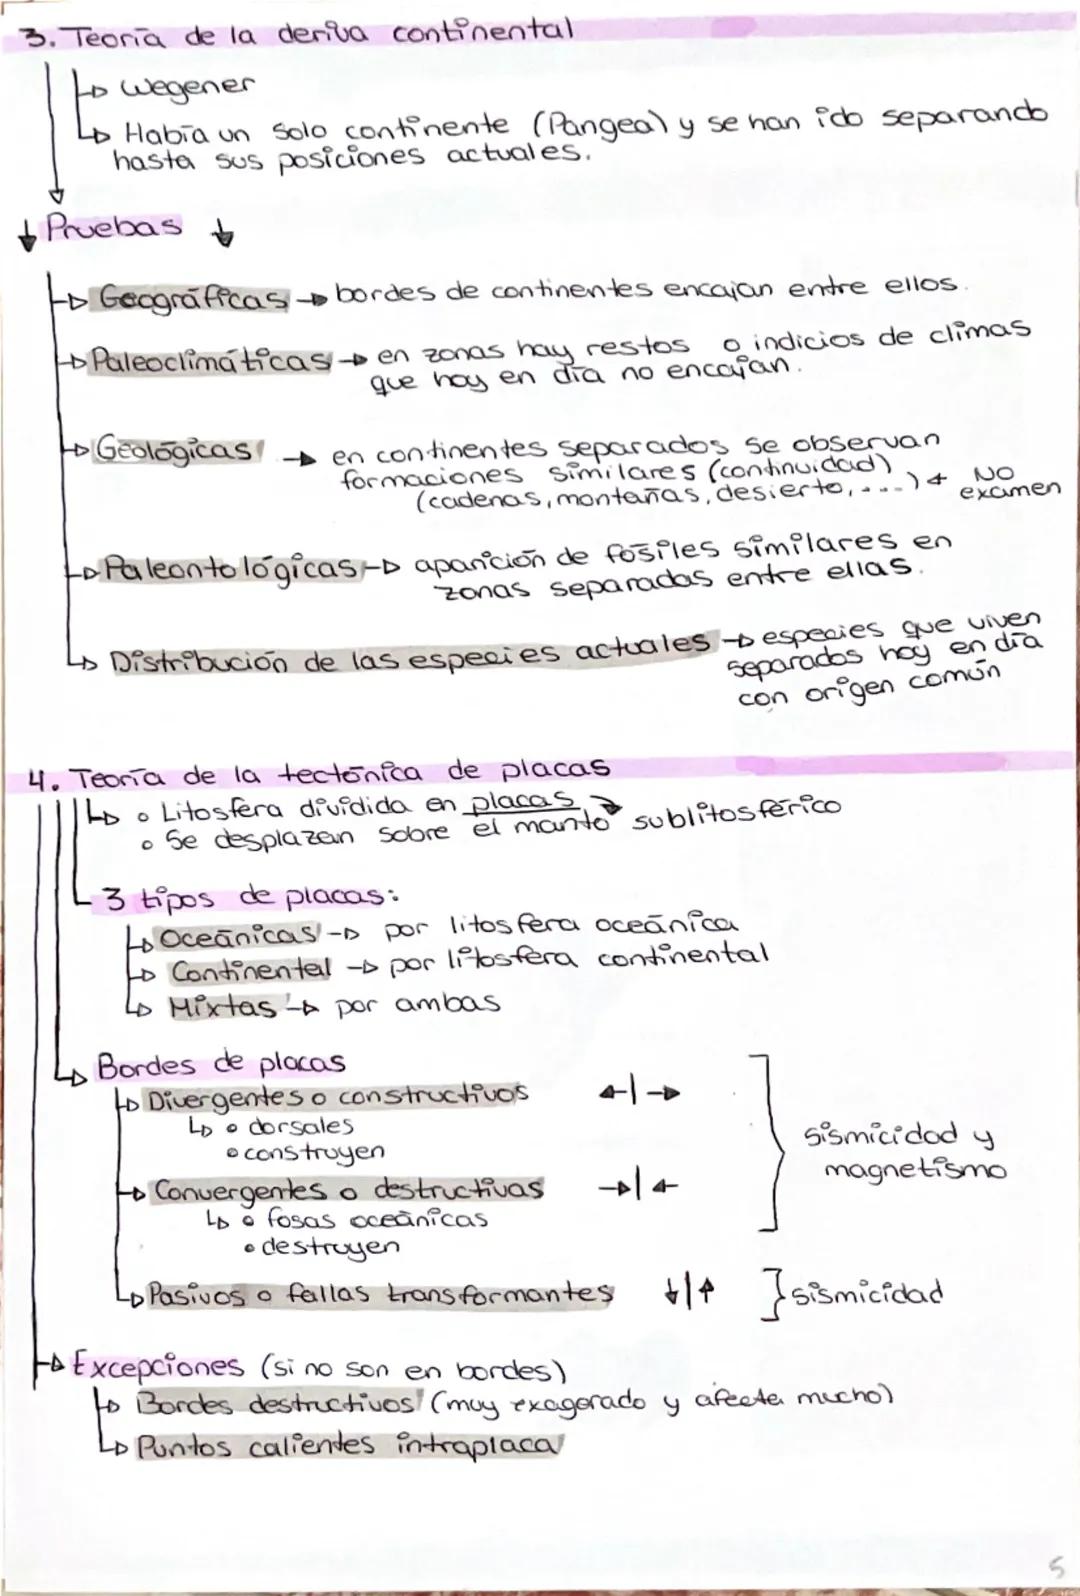 3. Teoría de la deriva continental
Wegener
Había un solo continente (Pangea) y se han ido separando
hasta sus posiciones actuales.
Pruebas
Geográficas → bordes de continentes encajan entre ellos.
Paleoclimáticas → en zonas hay restos o indicios de climas
que hoy en día no encajan.
Geológicas → en continentes separados se observan
formaciones similares (continuidad)
(cadenas, montañas, desierto, ....) ← NO
examen
Paleontológicas → aparición de fósiles similares en
zonas separadas entre ellas.
Distribución de las especies actuales → especies que viven
separados hoy en día
con origen común
4. Teoría de la tectónica de placas
• Litosfera dividida en placas
• Se desplazan sobre el manto sublitosférico
3 tipos de placas:
Oceánicas → por litosfera oceánica
Continental → por litosfera continental
Mixtas → por ambas
Bordes de placas
Divergentes o constructivos ←|→
• dorsales
• construyen
sismicidad y
magnetismo
Convergentes o destructivas →|←
• fosas oceánicas
• destruyen
Pasivos o fallas transformantes ↓|↑ } sismicidad
Excepciones (si no son en bordes)
Bordes destructivos (muy exagerado y afecta mucho)
Puntos calientes intraplaca
5